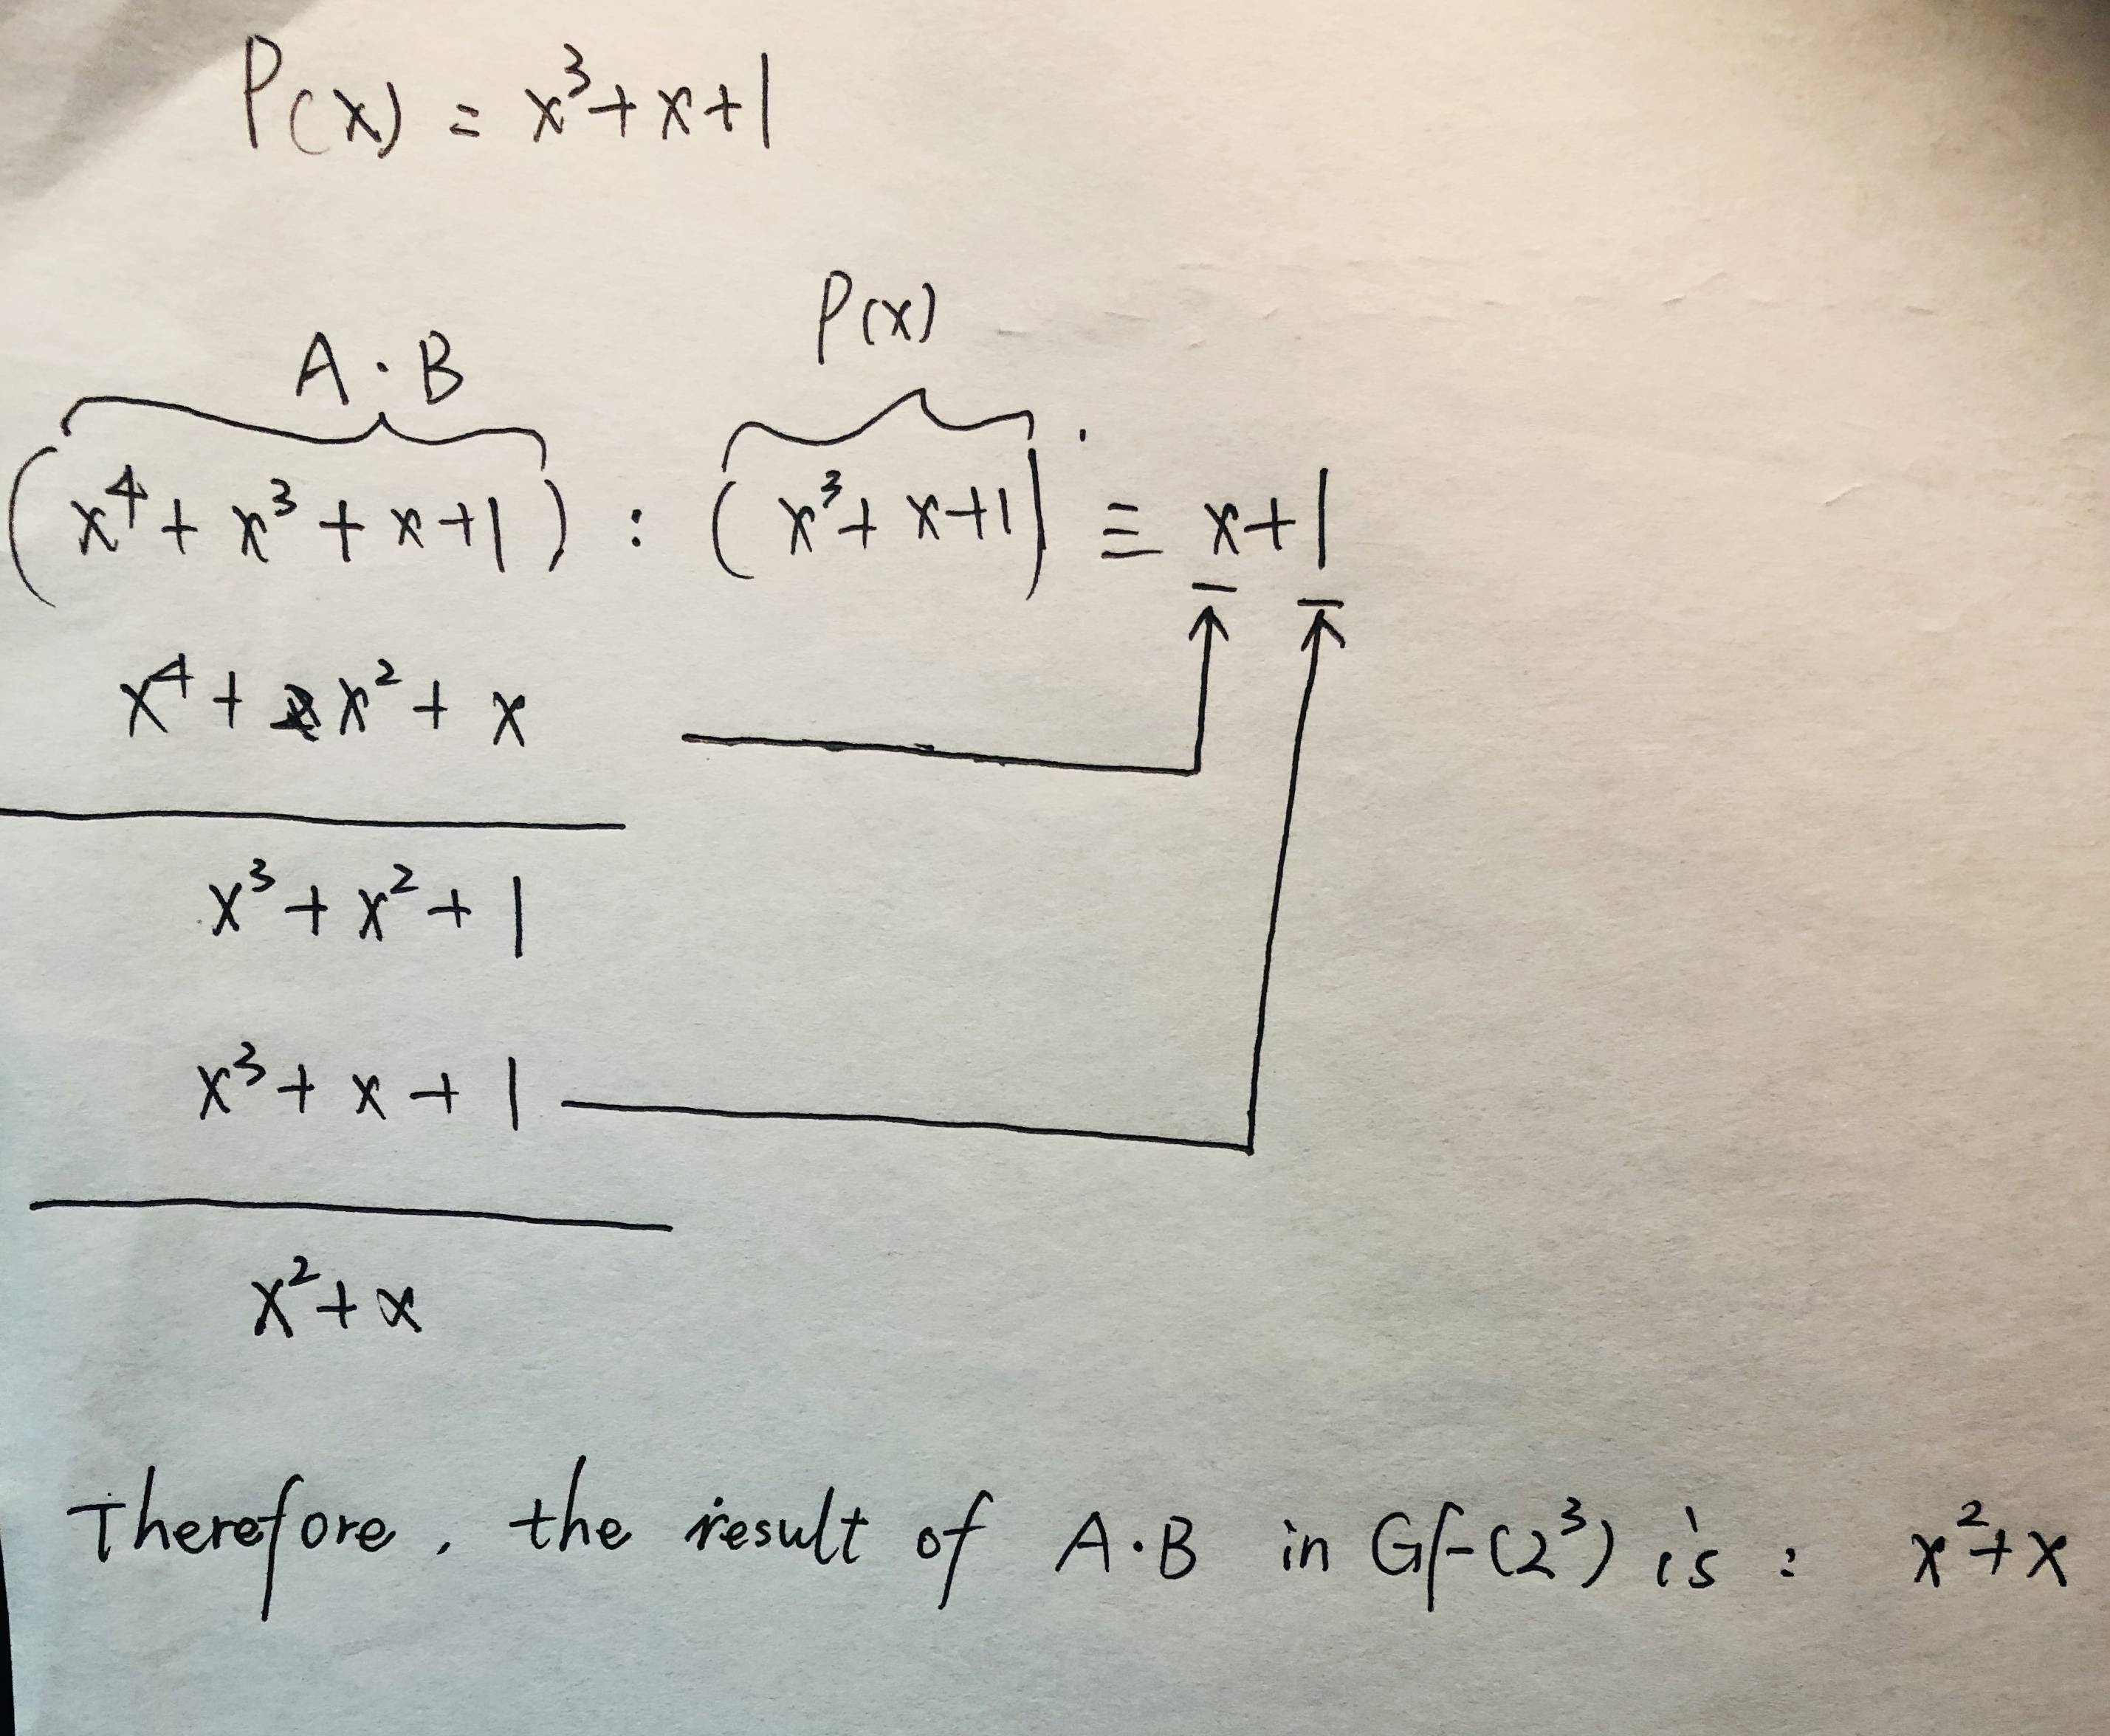 P(x) = x³+x+1
P(x)
A·B
(x⁴+x³+x+1) : (x³+x+1) ≡ x+1
x⁴+x²+x
x³+x²+1
x³+x+1
x²+x
Therefore, the result of A·B in GF(2³) is : x²+x